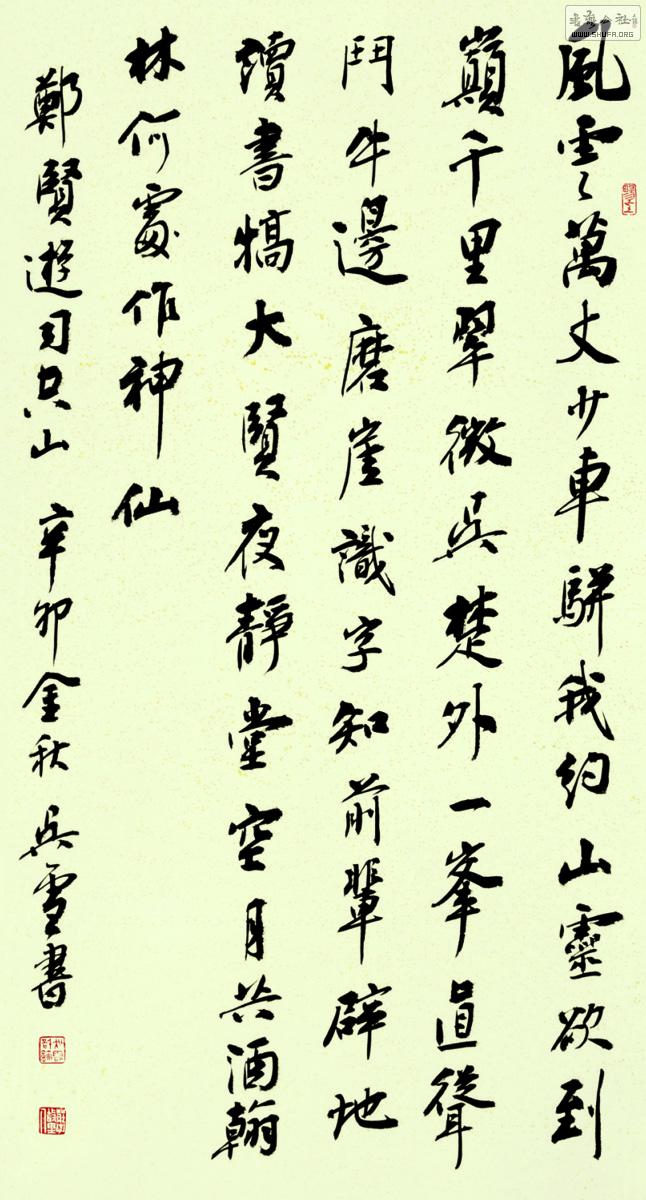 風雲萬丈少車駢我約山靈欲到
巔千里翠微吳楚外一峯直聳
鬥牛邊磨崖識字知前輩辟地
讀書犒大賢夜靜堂空月共酒翰
林何處作神仙
鄭賢遊司空山 辛卯金秋 吳雪書
書藝公社
WWW.SHUFA.ORG